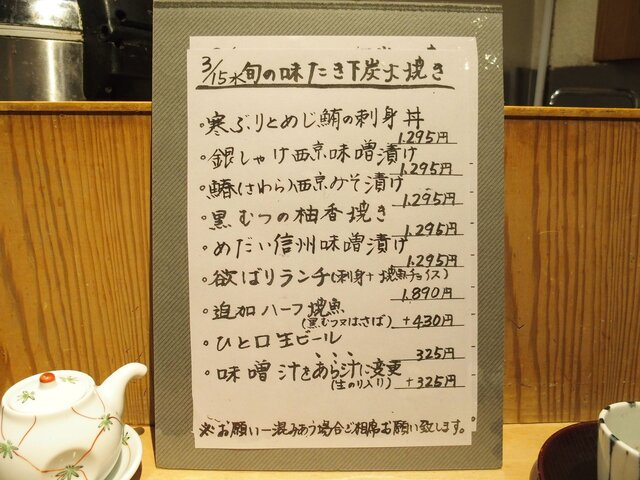 3/15水 旬の味たき下炭火焼き
・寒ぶりとめじ鮪の刺身丼
1.295円
・銀しゃけ西京味噌漬け
1.295円
・鰆(さわら)西京みそ漬け
1.295円
・黒むつの柚香焼き
1.295円
・めだい信州味噌漬け
1.295円
・欲ばりランチ(刺身+焼魚チョイス)
1.890円
・追加ハーフ焼魚
(黒むつ又はさば) +430円
・ひと口生ビール
325円
・味噌汁をあら汁に変更
(生のり入り) +325円
※お願いー混みあう場合ご相席お願い致します。